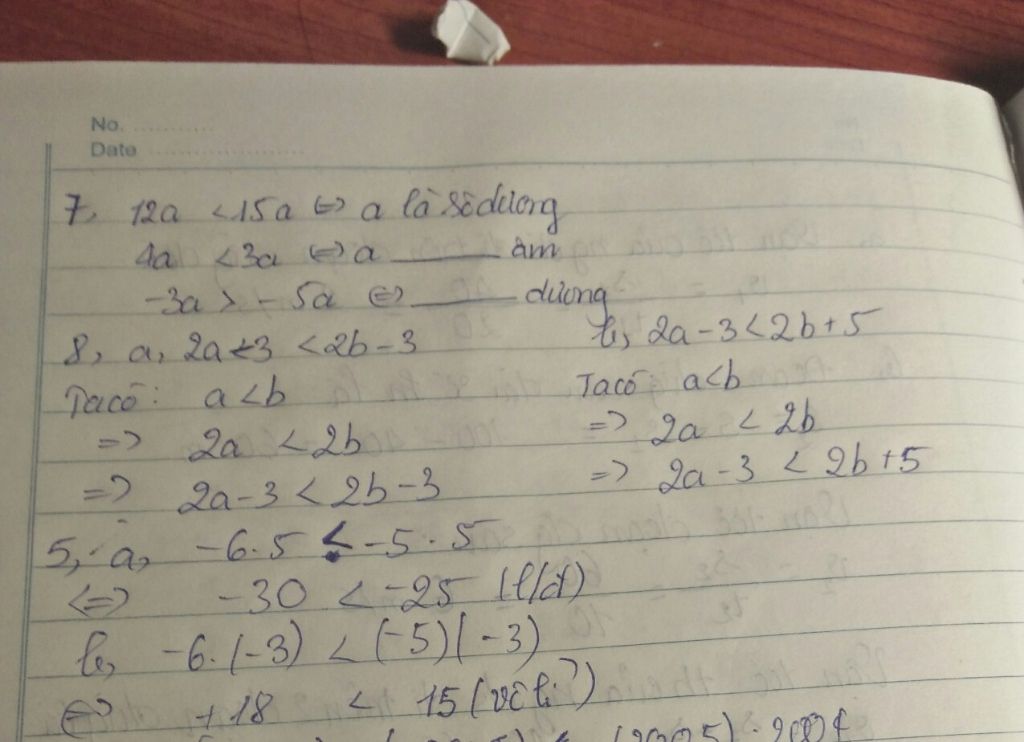 No. ............
Date ........................
7, 12a < 15a <=> a là số dương
4a < 3a <=> a ______ âm
-3a > -5a <=> ______ dương
8, a, 2a-3 < 2b-3
b, 2a-3 < 2b+5
Ta có: a < b
Ta có: a<b
=> 2a < 2b
=> 2a < 2b
=> 2a-3 < 2b-3
=> 2a-3 < 2b+5
5, a, -6.5 < -5.5
<=> -30 < -25 (l/đ)
b, -6.(-3) < (-5)(-3)
<=> +18 < 15 (vô lí)